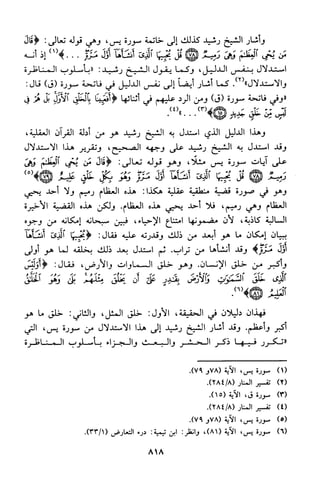 وأشار الشيخ رشيد كذلك إلى خاتمة سورة يس، وهي قوله تعالى: ﴿قَالَ
مَن يُحْيِ الْعِظَامَ وَهِيَ رَمِيمٌ ﴿٧٨﴾ قُلْ يُحْيِيهَا الَّذِي أَنشَأَهَا أَوَّلَ مَرَّةٍ ...﴾(١) إذ أنه
استدلال بنفس الدليل، وكما يقول الشيخ رشيد: «بأسلوب المناظرة
والاستدلال»(٢). كما أشار أيضاً إلى نفس الدليل في فاتحة سورة (ق) قال:
«وفي فاتحة سورة (ق) ومن الرد عليهم في أثنائها ﴿أَفَعَيِينَا بِالْخَلْقِ الْأَوَّلِ بَلْ هُمْ فِي
لَبْسٍ مِّنْ خَلْقٍ جَدِيدٍ ﴿١٥﴾﴾(٣)... »(٤).
وهذا الدليل الذي استدل به الشيخ رشيد هو من أدلة القرآن العقلية،
وقد استدل به الشيخ رشيد على وجهه الصحيح، وتقرير هذا الاستدلال
على آيات سورة يس مثلًا، وهو قوله تعالى: ﴿قَالَ مَن يُحْيِ الْعِظَامَ وَهِيَ
رَمِيمٌ ﴿٧٨﴾ قُلْ يُحْيِيهَا الَّذِي أَنشَأَهَا أَوَّلَ مَرَّةٍ وَهُوَ بِكُلِّ خَلْقٍ عَلِيمٌ ﴿٧٩﴾﴾(٥)
وهو في صورة قضية منطقية عقلية هكذا: هذه العظام رميم ولا أحد يحيي
العظام وهي رميم، فلا أحد يحيي هذه العظام. ولكن هذه القضية الأخيرة
السالبة كاذبة، لأن مضمونها امتناع الإحياء، فبين سبحانه إمكانه من وجوه
ببيان إمكان ما هو أبعد من ذلك وقدرته عليه فقال: ﴿يُحْيِيهَا الَّذِي أَنشَأَهَا
أَوَّلَ مَرَّةٍ﴾ وقد أنشأها من تراب. ثم استدل بعد ذلك بخلقه لما هو أولى
وأكبر من خلق الإنسان. وهو خلق السماوات والأرض، فقال: ﴿أَوَلَيْسَ
الَّذِي خَلَقَ السَّمَاوَاتِ وَالْأَرْضَ بِقَادِرٍ عَلَىٰ أَن يَخْلُقَ مِثْلَهُم بَلَىٰ وَهُوَ الْخَلَّاقُ
الْعَلِيمُ ﴿٨١﴾﴾(٦).
فهذان دليلان في الحقيقة، الأول: خلق المثل، والثاني: خلق ما هو
أكبر وأعظم. وقد أشار الشيخ رشيد إلى هذا الاستدلال من سورة يس، التي
«تكرر فيها ذكر الحشر والبعث والجزاء بأسلوب المناظرة
(١) سورة يس، الآية (٧٨ و ٧٩).
(٢) تفسير المنار (٢٨٤/٨).
(٣) سورة ق، الآية (١٥).
(٤) تفسير المنار (٢٨٤/٨).
(٥) سورة يس، الآية (٧٨ و ٧٩).
(٦) سورة يس، الآية (٨١)، وانظر: ابن تيمية: درء التعارض (٣٣/١).
٨١٨